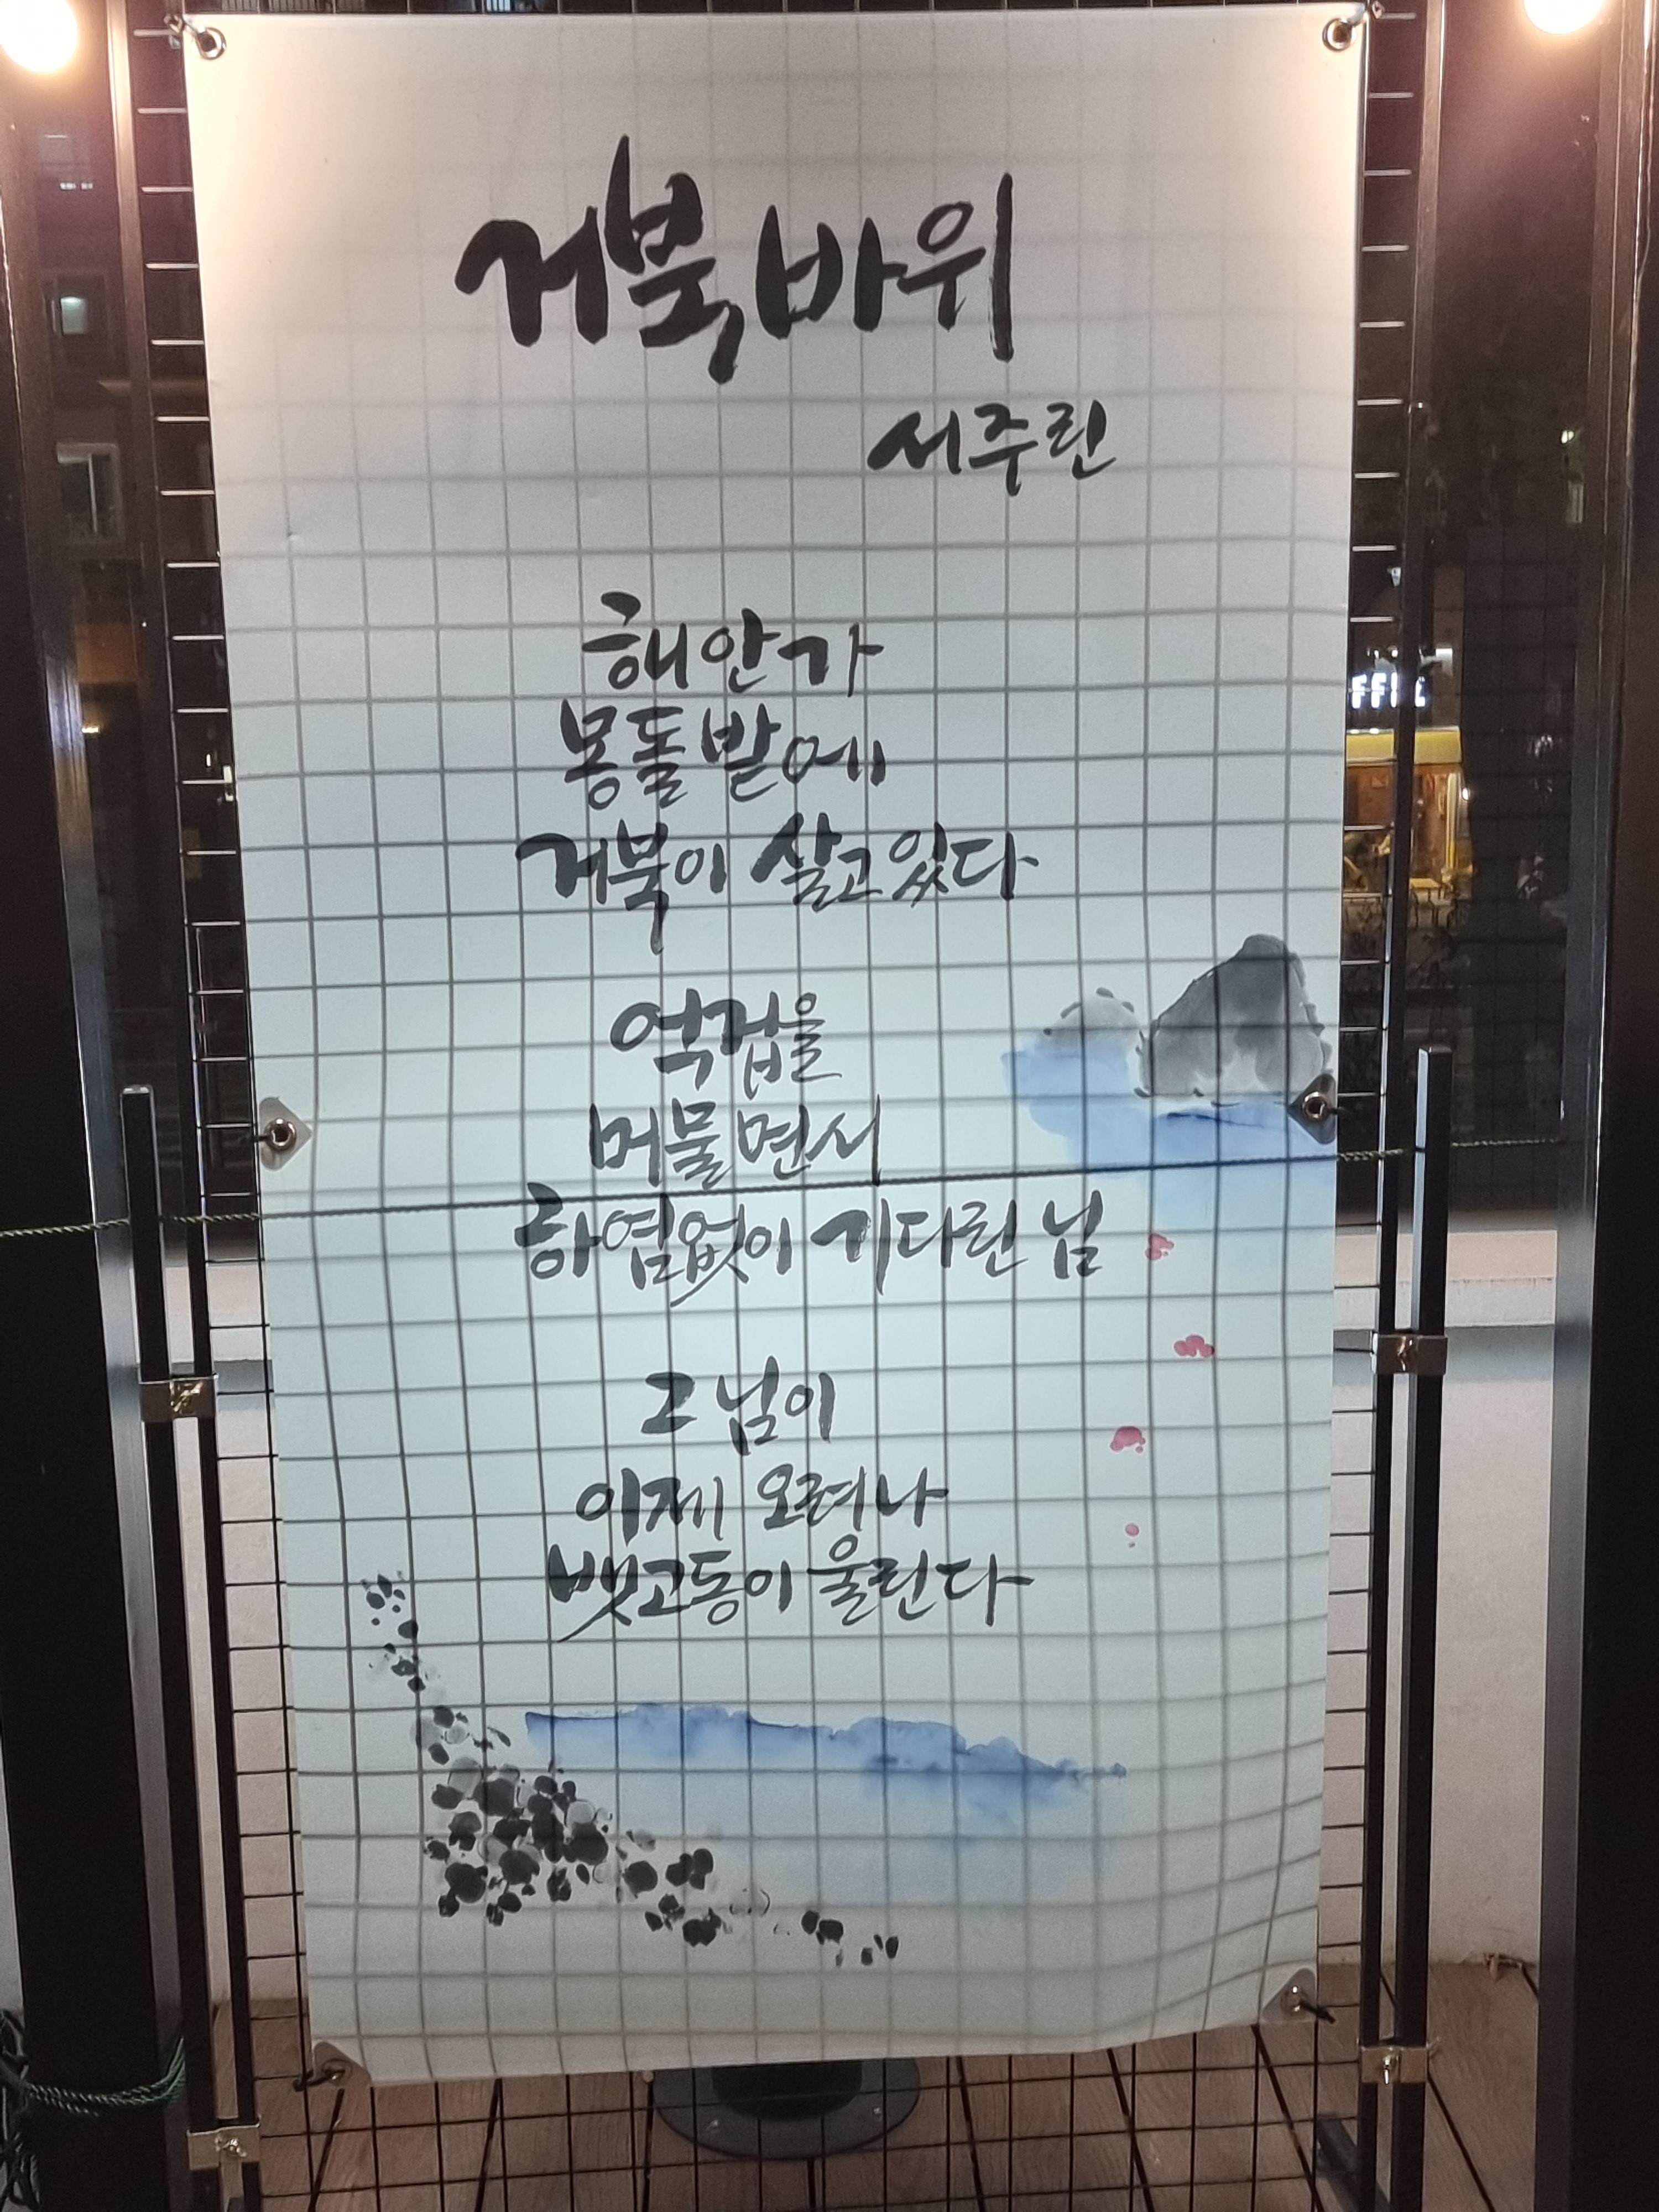 거북바위
서주린
해안가
몽돌밭에
거북이 살고있다
억겁을
머물면서
하염없이 기다린 님
그 님이
이제 오려나
뱃고동이 울린다